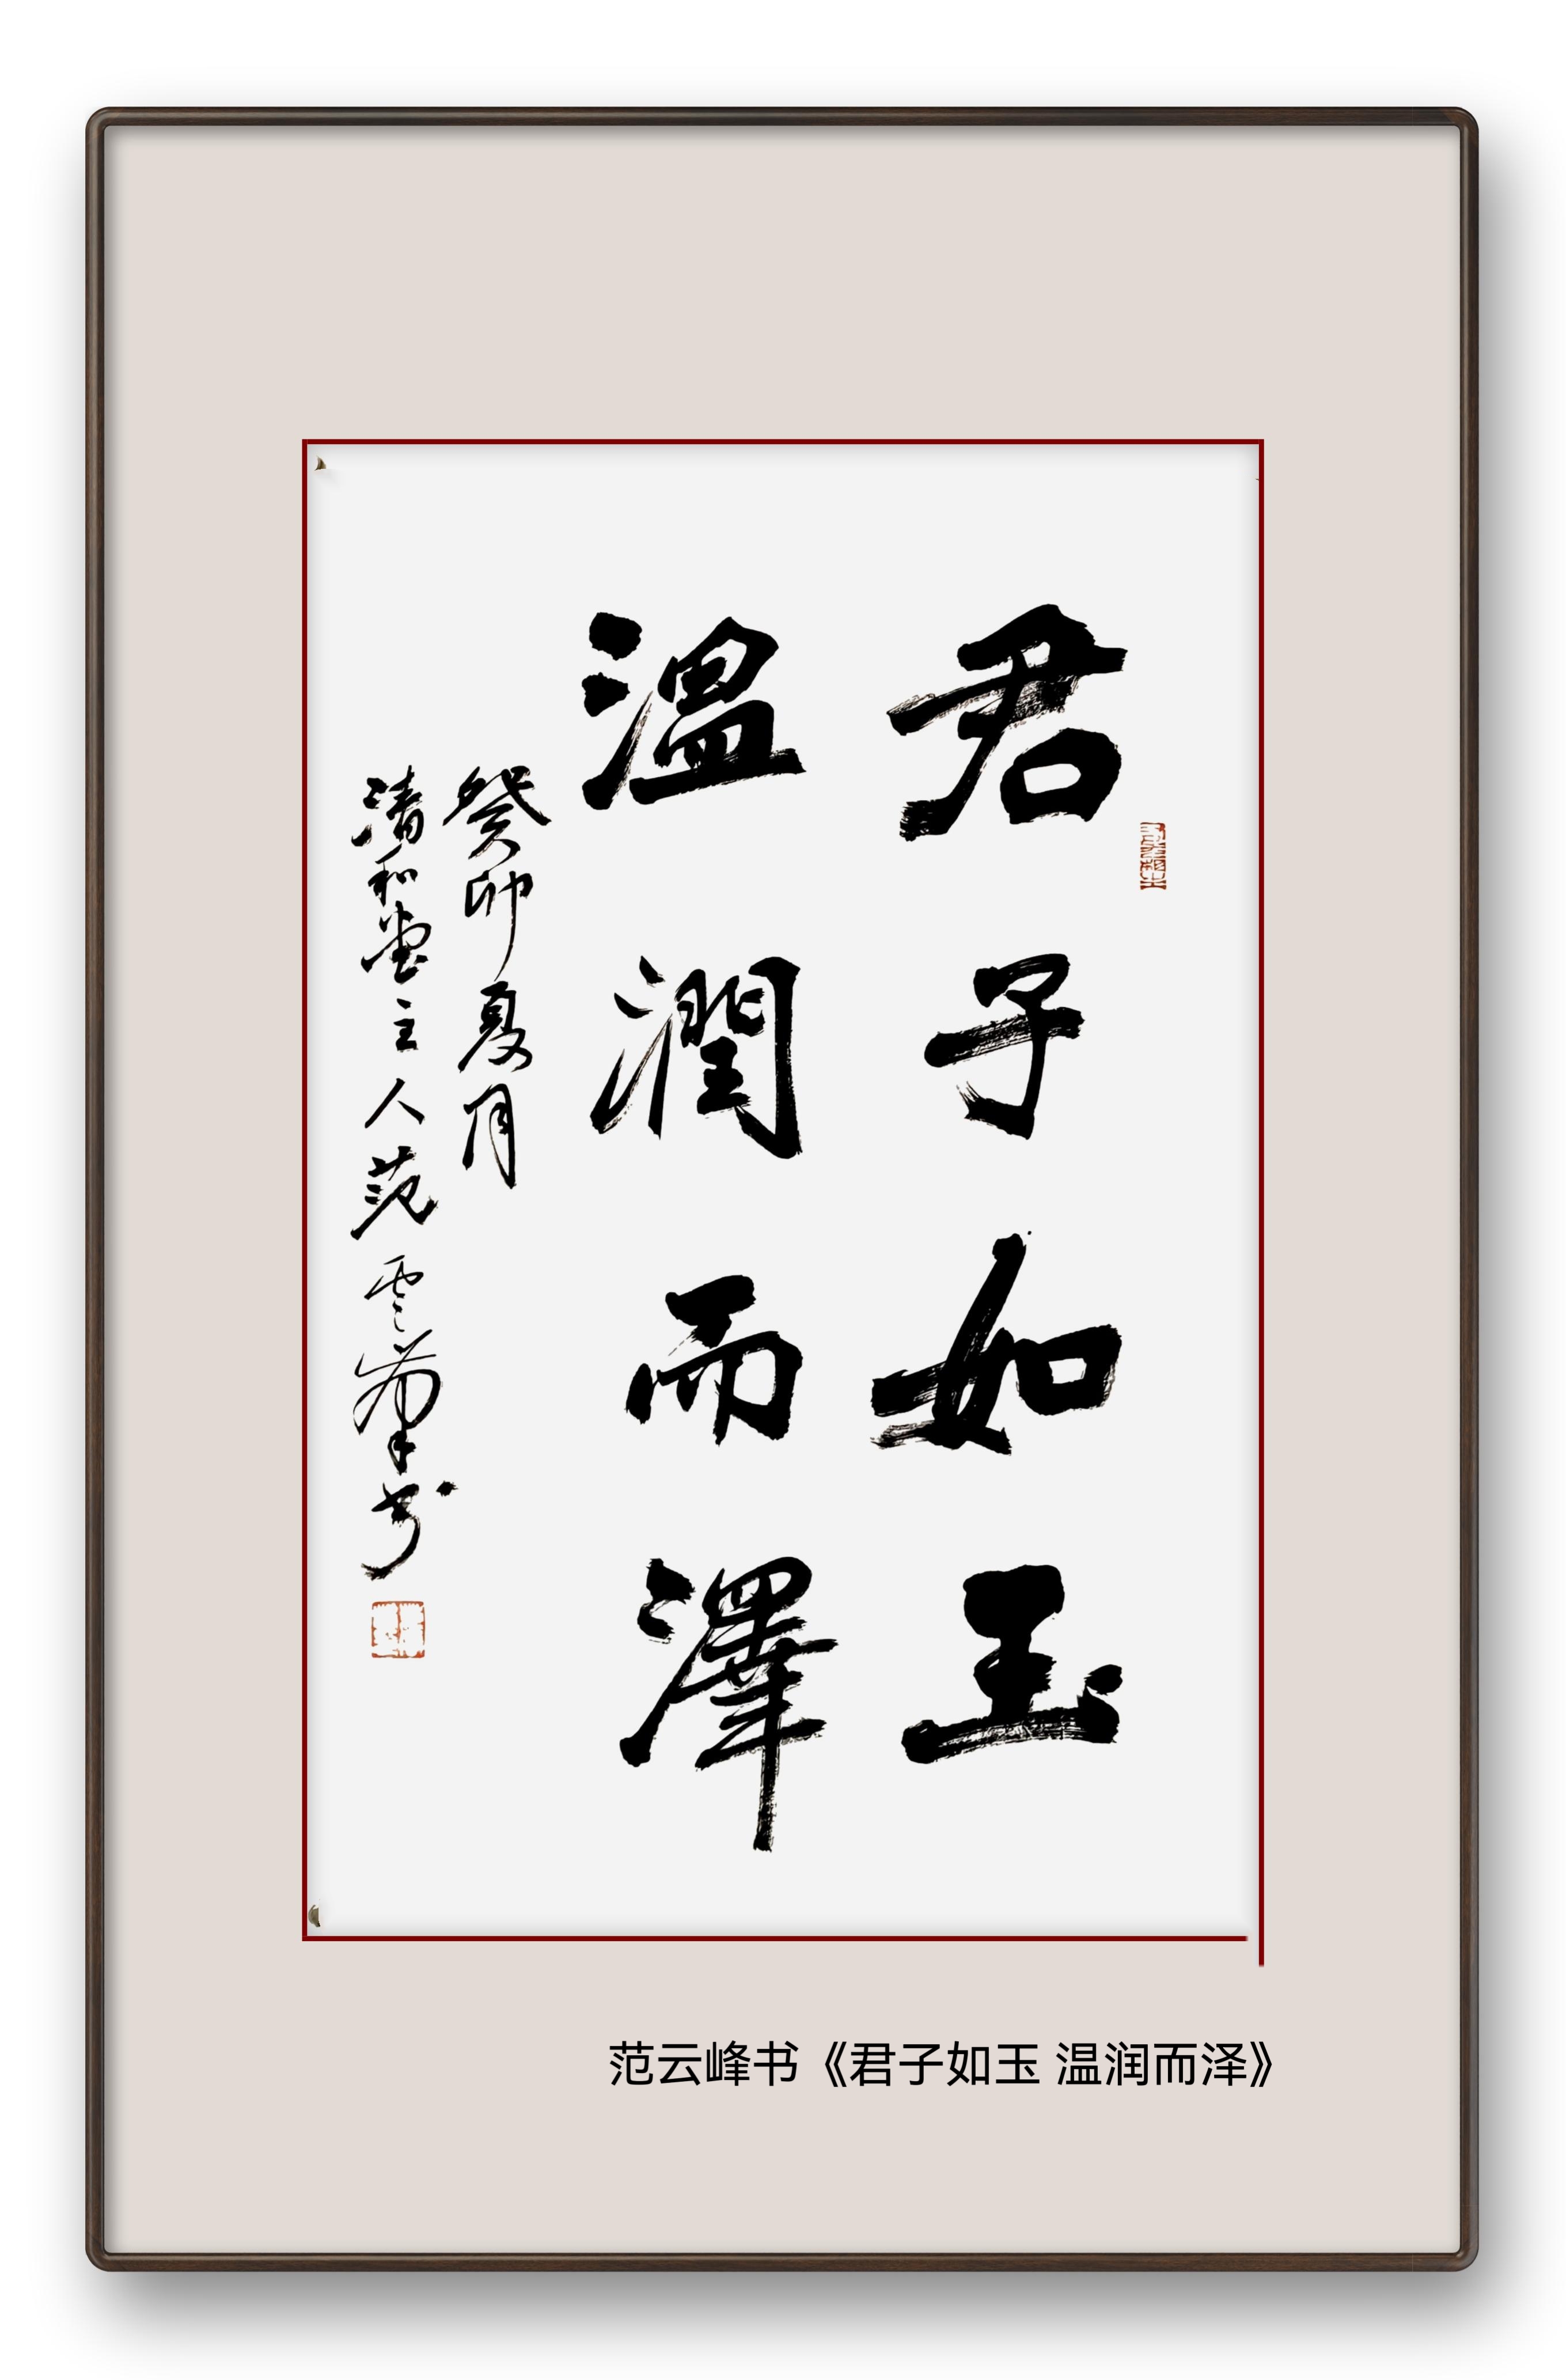 君子如玉
溫潤而澤
癸卯夏月
清和堂主人范雲峯书
范云峰书《君子如玉 温润而泽》